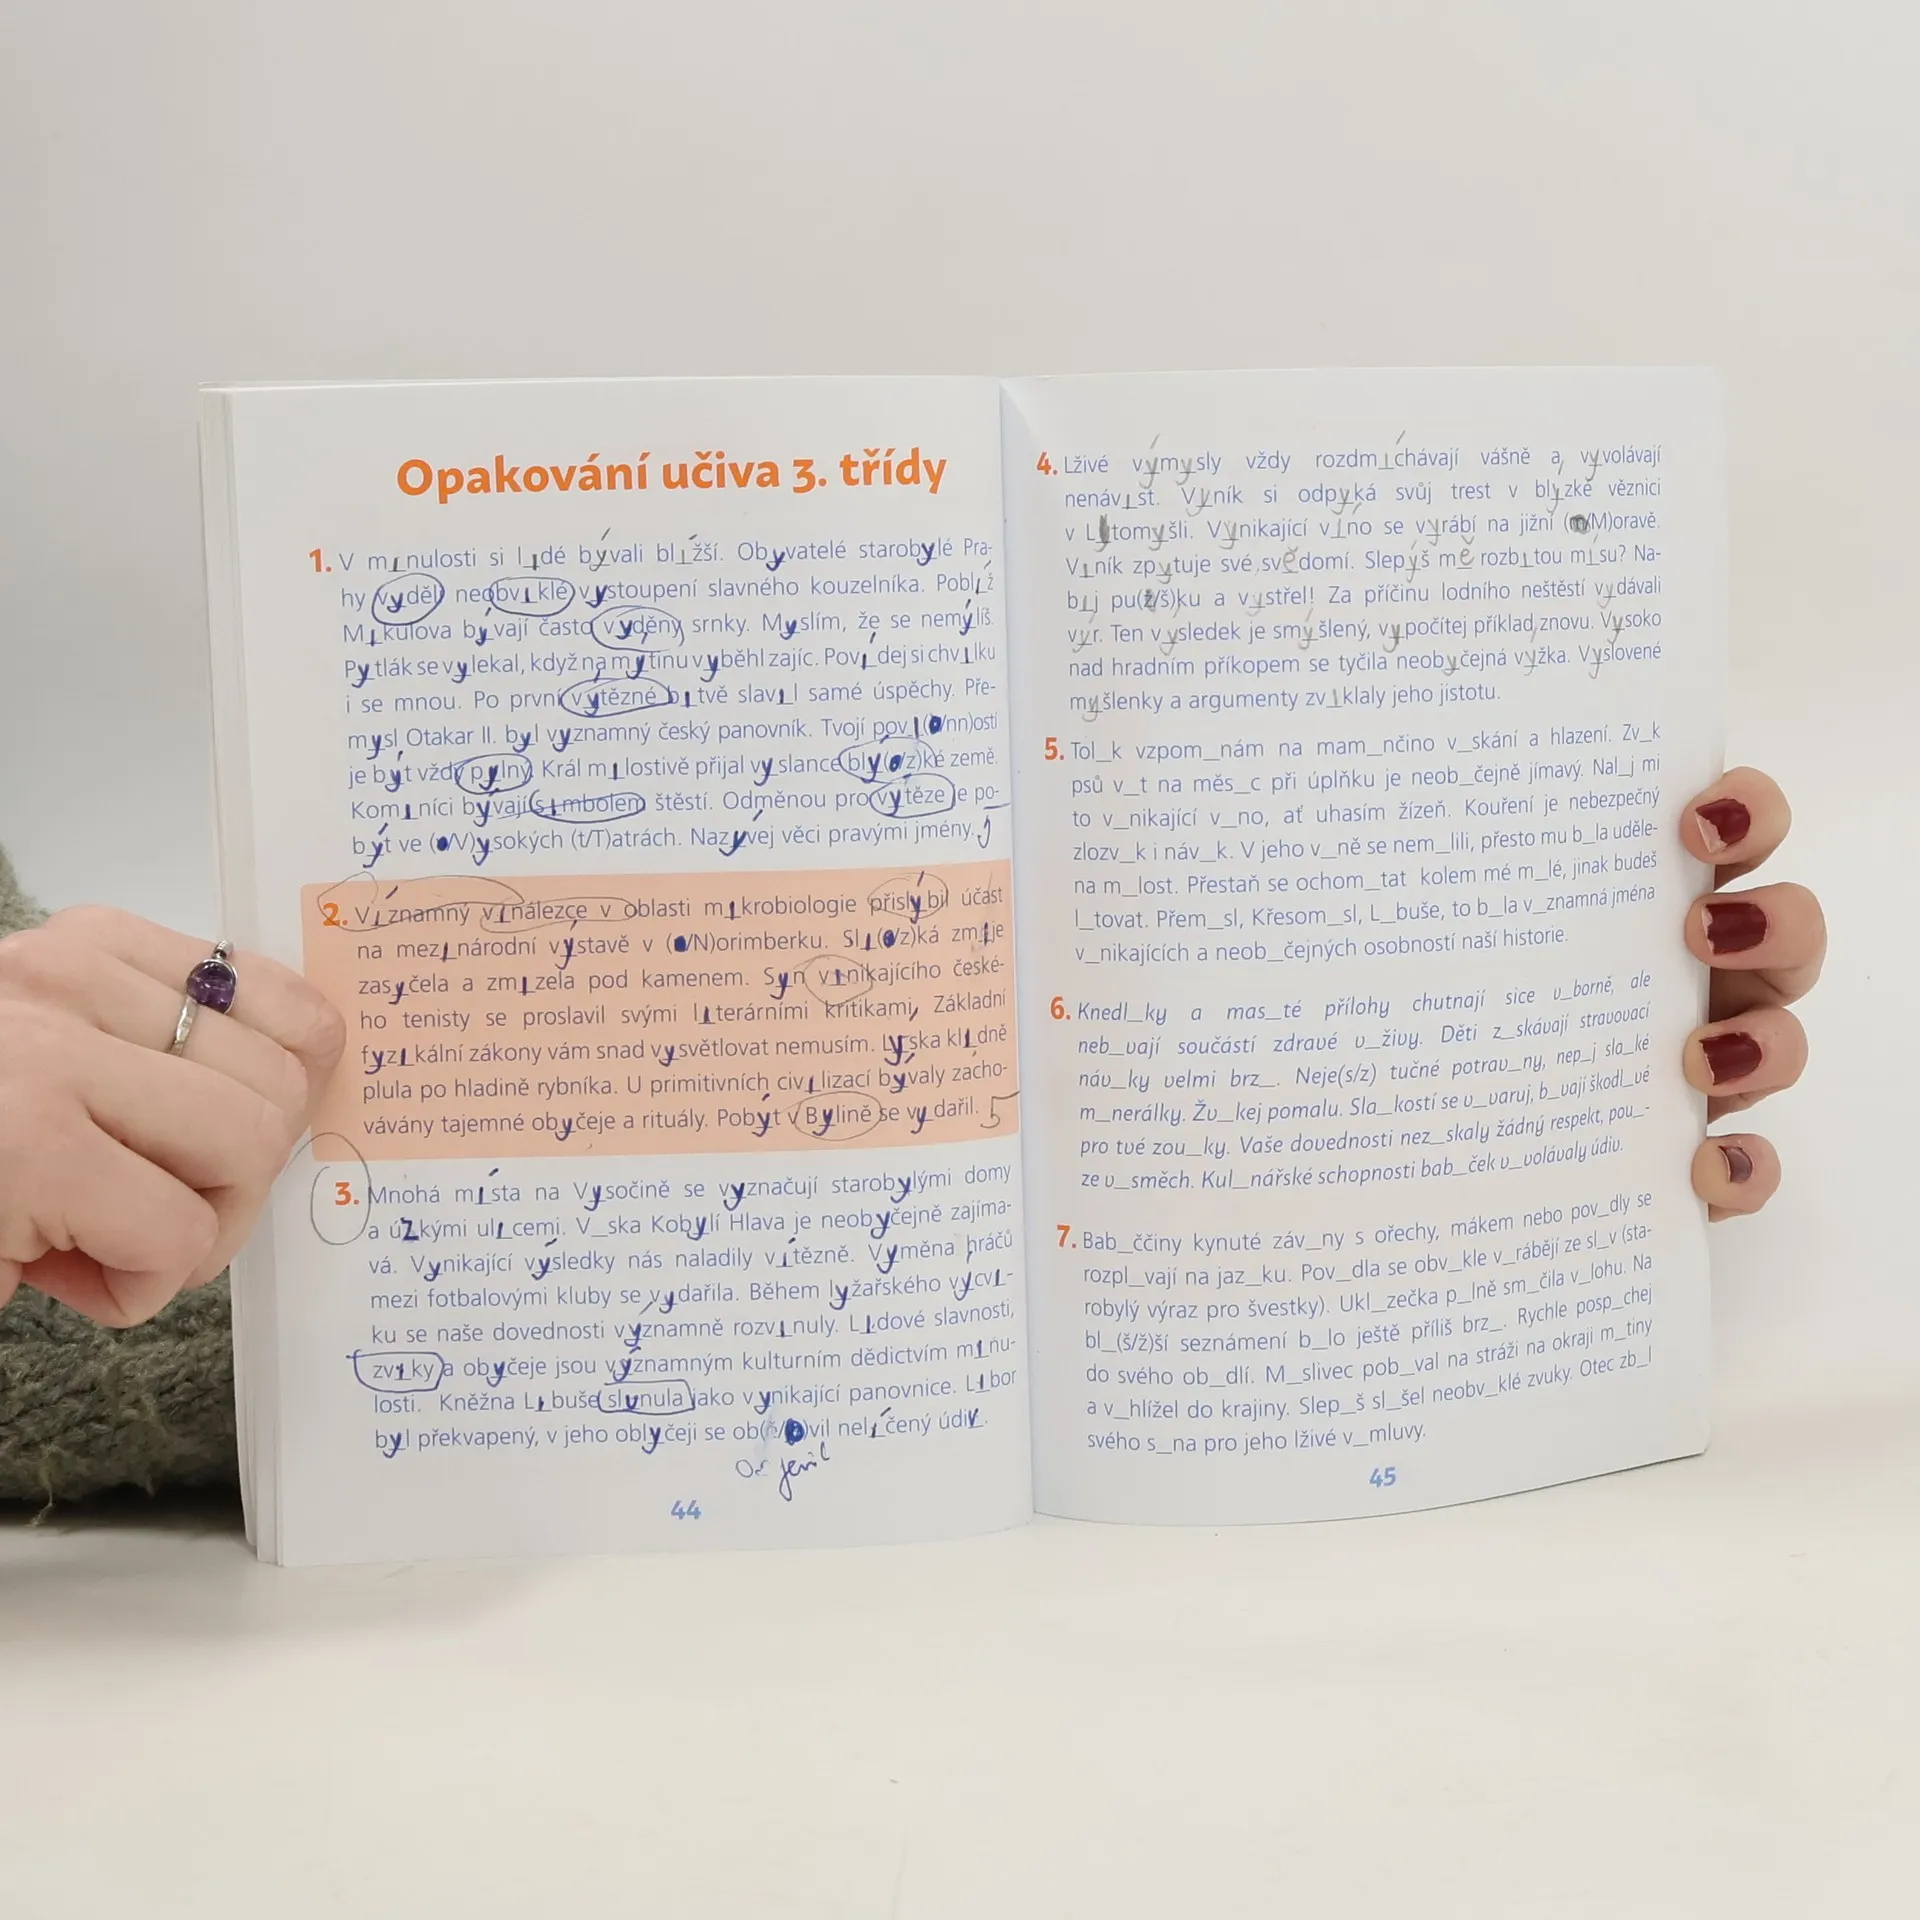 Opakování učiva 3. třídy
1. V minulosti si lidé bývali bližší. Obyvatelé starobylé Pra-
hy vyděli neobviklé vystoupení slavného kouzelníka. Poblíž
Mikulova bývají často vyděny srnky. Myslím, že se nemýlíš.
Pytlák se vylekal, když na mýtinu vyběhl zajíc. Povídej si chvilku
i se mnou. Po první výtězné bitvě slavil samé úspěchy. Pře-
mysl Otakar II. byl významný český panovník. Tvojí povi(n/nn)ostí
je být vždy pylný. Král milostivě přijal vyslance blý(s/z)ké země.
Kominíci bývají simbolem štěstí. Odměnou pro výtěze je po-
být ve (v/V)ysokých (t/T)atrách. Nazývej věci pravými jmény.
2. Víznamný vinálezce v oblasti mikrobiologie přislýbil účast
na mezinárodní výstavě v (n/N)orimberku. Sli(s/z)ká zmije
zasyčela a zmizela pod kamenem. Syn vinikajícího české-
ho tenisty se proslavil svými literárními kritikami, Základní
fyzikální zákony vám snad vysvětlovat nemusím. Lyska klidně
plula po hladině rybníka. U primitivních civilizací bývaly zacho-
vávány tajemné obyčeje a rituály. Pobýt v Bylině se vydařil. 5
3. Mnohá místa na Vysočině se vyznačují starobylými domy
a úzkými ulicemi. V_ska Kobylí Hlava je neobyčejně zajíma-
vá. Vynikající výsledky nás naladily vítězně. Výměna hráčů
mezi fotbalovými kluby se vydařila. Během lyžařského výcvi-
ku se naše dovednosti významně rozvinuly. Lidové slavnosti,
zviky a obyčeje jsou významným kulturním dědictvím minu-
losti. Kněžna Libuše slynula jako vynikající panovnice. Libor
byl překvapený, v jeho oblyčeji se ob(ě/je)vil nelíčený údiv.
44
4. Lživé výmysly vždy rozdmíchávají vášně a vyvolávají
nenávist. Vyník si odpyká svůj trest v blyzké věznici
v Lytomyšli. Vynikající víno se vyrábí na jižní (m/M)oravě.
Viník zpytuje své svědomí. Slepýš mě rozbitou mísu? Na-
bij pu(ž/š)ku a vystřel! Za příčinu lodního neštěstí vydávali
výr. Ten výsledek je smyšlený, vypočítej příklad znovu. Vysoko
nad hradním příkopem se tyčila neobyčejná výžka. Vyslovené
myšlenky a argumenty zviklaly jeho jistotu.
5. Tol_k vzpom_nám na mam_nčino v_skání a hlazení. Zv_k
psů v_t na měs_c při úplňku je neob_čejně jímavý. Nal_j mi
to v_nikající v_no, ať uhasím žízeň. Kouření je nebezpečný
zlozv_k i náv_k. V jeho v_ně se nem_lili, přesto mu b_la uděle-
na m_lost. Přestaň se ochom_tat kolem mé m_lé, jinak budeš
l_tovat. Přem_sl, Křesom_sl, L_buše, to b_la v_znamná jména
v_nikajících a neob_čejných osobností naší historie.
6. Knedl_ky a mas_té přílohy chutnají sice v_borně, ale
neb_vají součástí zdravé v_živy. Děti z_skávají stravovací
náv_ky velmi brz_. Neje(s/z) tučné potrav_ny, nep_j sla_ké
m_nerálky. Žv_kej pomalu. Sla_kostí se v_varuj, b_vají škodl_vé
pro tvé zou_ky. Vaše dovednosti nez_skaly žádný respekt, pou_-
ze v_směch. Kul_nářské schopnosti bab_ček v_volávaly údiv.
7. Bab_ččiny kynuté záv_ny s ořechy, mákem nebo pov_dly se
rozpl_vají na jaz_ku. Pov_dla se obv_kle v_rábějí ze sl_v (sta-
robylý výraz pro švestky). Ukl_zečka p_lně sm_čila v_lohu. Na
bl_(š/ž)ší seznámení b_lo ještě příliš brz_. Rychle posp_chej
do svého ob_dlí. M_slivec pob_val na stráži na okraji m_tiny
a v_hlížel do krajiny. Slep_š sl_šel neobv_klé zvuky. Otec zb_l
svého s_na pro jeho lživé v_mluvy.
45